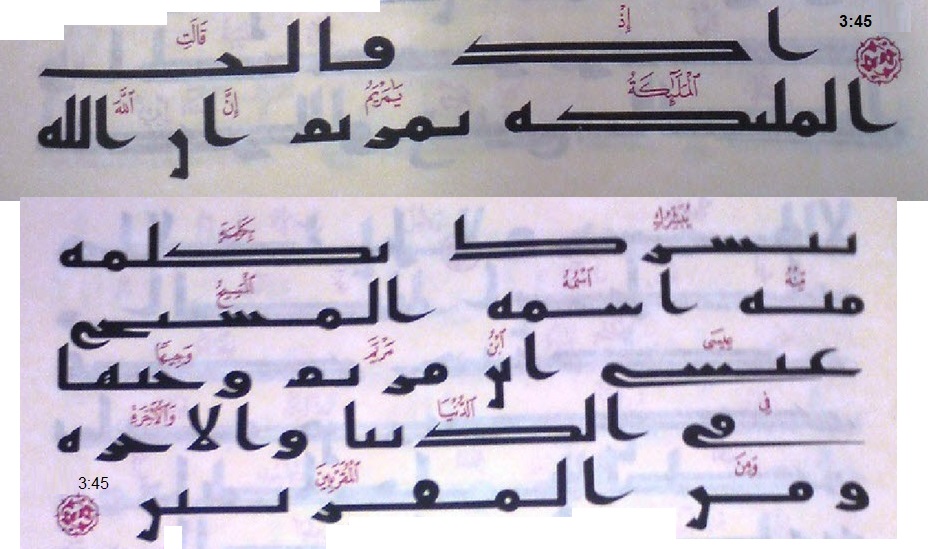 3:45
إِذْ قَالَتِ
اذ قالت
ٱلْمَلَٰٓئِكَةُ يَٰمَرْيَمُ إِنَّ ٱللَّهَ
الملئكه يمريم ان الله
يُبَشِّرُكِ بِكَلِمَةٍ
يبشرك بكلمه
مِّنْهُ ٱسْمُهُ ٱلْمَسِيحُ
منه اسمه المسيح
عِيسَى ٱبْنُ مَرْيَمَ وَجِيهًا
عيسى ابن مريم وجيها
فِى ٱلدُّنْيَا وَٱلْءَاخِرَةِ
فى الدنيا والاخره
وَمِنَ ٱلْمُقَرَّبِينَ
ومن المقربين
3:45